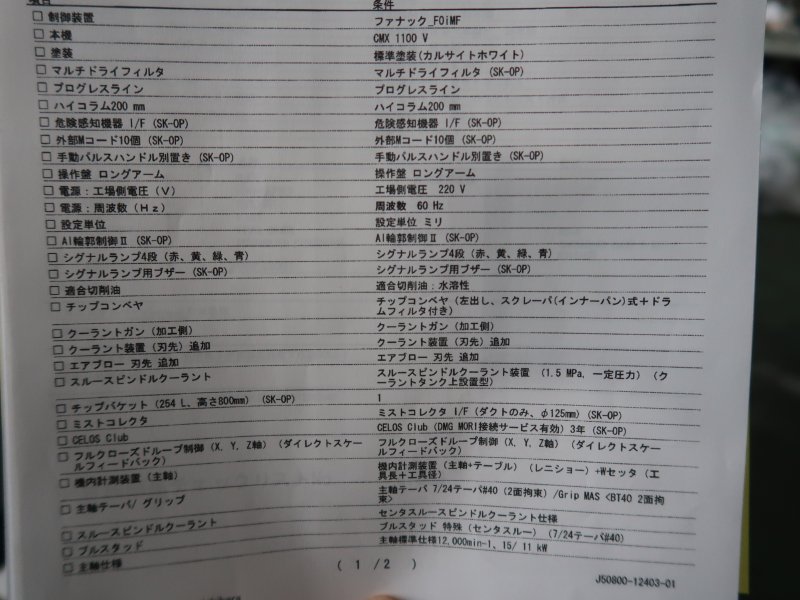 項目 条件
□ 制御装置 ファナック_F0iMF
□ 本機 CMX 1100 V
□ 塗装 標準塗装(カルサイトホワイト)
□ マルチドライフィルタ マルチドライフィルタ (SK-OP)
□ プログレスライン プログレスライン
□ ハイコラム200 mm ハイコラム200 mm
□ 危険感知機器 I/F (SK-OP) 危険感知機器 I/F (SK-OP)
□ 外部Mコード10個 (SK-OP) 外部Mコード10個 (SK-OP)
□ 手動パルスハンドル別置き (SK-OP) 手動パルスハンドル別置き (SK-OP)
□ 操作盤 ロングアーム 操作盤 ロングアーム
□ 電源：工場側電圧（V） 工場側電圧 220 V
□ 電源：周波数（Hz） 周波数 60 Hz
□ 設定単位 設定単位 ミリ
□ AI輪郭制御Ⅱ (SK-OP) AI輪郭制御Ⅱ (SK-OP)
□ シグナルランプ4段（赤、黄、緑、青） シグナルランプ4段（赤、黄、緑、青）
□ シグナルランプ用ブザー (SK-OP) シグナルランプ用ブザー (SK-OP)
□ 適合切削油 適合切削油：水溶性
□ チップコンベヤ チップコンベヤ（左出し、スクレーパ(インナーパン)式＋ドラ
ムフィルタ付き）
□ クーラントガン（加工側） クーラントガン（加工側）
□ クーラント装置（刃先）追加 クーラント装置（刃先）追加
□ エアブロー 刃先 追加 エアブロー 刃先 追加
□ スルースピンドルクーラント スルースピンドルクーラント装置 （1.5 MPa, 一定圧力）（ク
ーラントタンク上設置型）
□ チップバケット（254 L、高さ800mm）(SK-OP) 1
□ ミストコレクタ ミストコレクタ I/F（ダクトのみ、φ125mm）(SK-OP)
□ CELOS Club CELOS Club（DMG MORI接続サービス有効）3年 (SK-OP)
□ フルクローズドループ制御（X, Y, Z軸）（ダイレクトスケー
ルフィードバック） フルクローズドループ制御（X, Y, Z軸）（ダイレクトスケー
ルフィードバック）
□ 機内計測装置（主軸） 機内計測装置（主軸+テーブル）（レニショー）+Wセッタ（工
具長＋工具径）
□ 主軸テーパ/ グリップ 主軸テーパ 7/24テーパ#40（2面拘束）/Grip MAS <BT40 2面拘
束>
□ スルースピンドルクーラント センタスルースピンドルクーラント仕様
□ プルスタッド プルスタッド 特殊（センタスルー）（7/24テーパ#40）
□ 主軸仕様 主軸標準仕様12,000min-1、15/ 11 kW
( 1 / 2 )
J50800-12403-01